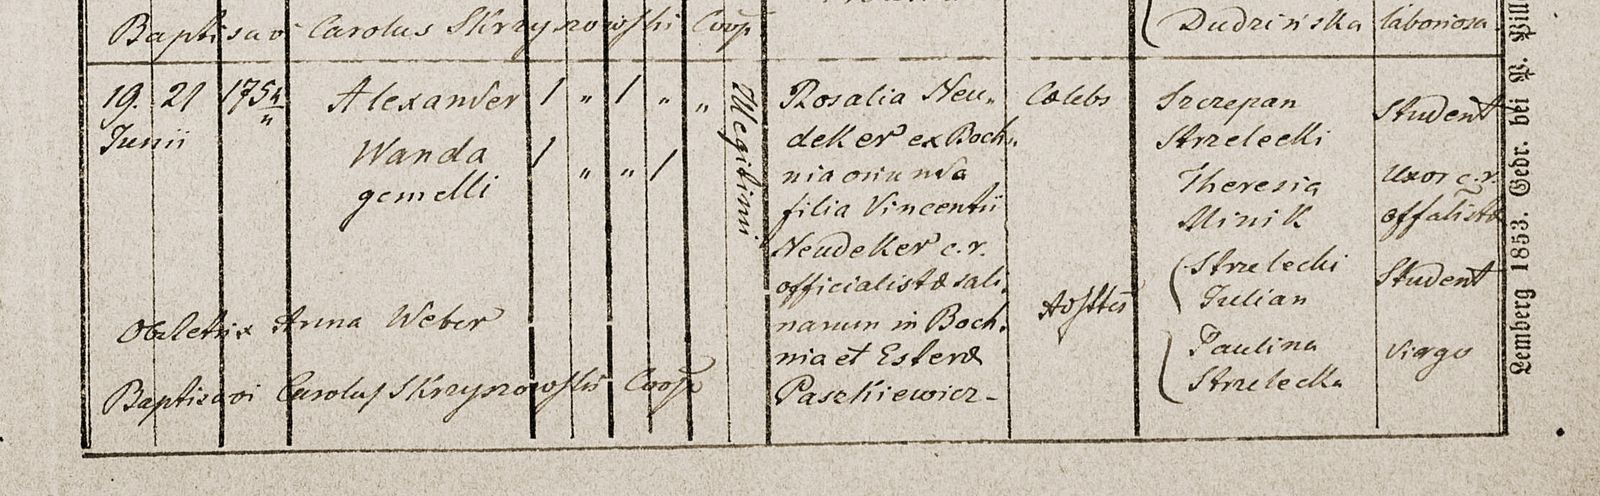 Baptisavi Carolus Skrzyszowski Coop
Dudzińska laboriosa
19. 21 175
Junii
Alexander 1 " 1 " "
Wanda 1 " " 1
gemelli
Illegitimi
Rosalia Neu„
deker ex Boch„
nia oriunda
filia Vincentii
Neudeker c.r.
officialistæ sali„
narum in Boch„
nia et Esteræ
Paszkiewicz-
Cælebs
Szczepan
Strzelecki
Student
Theresia
Minik
Uxor c.r.
Strzelecki
Julian
Student
Paulina
Strzelecka
Virgo
Obstetrix Anna Weber
Baptisavi Carolus Skrzyszowski Coop
Lemberg 1853. Gedr. bei P. Pill